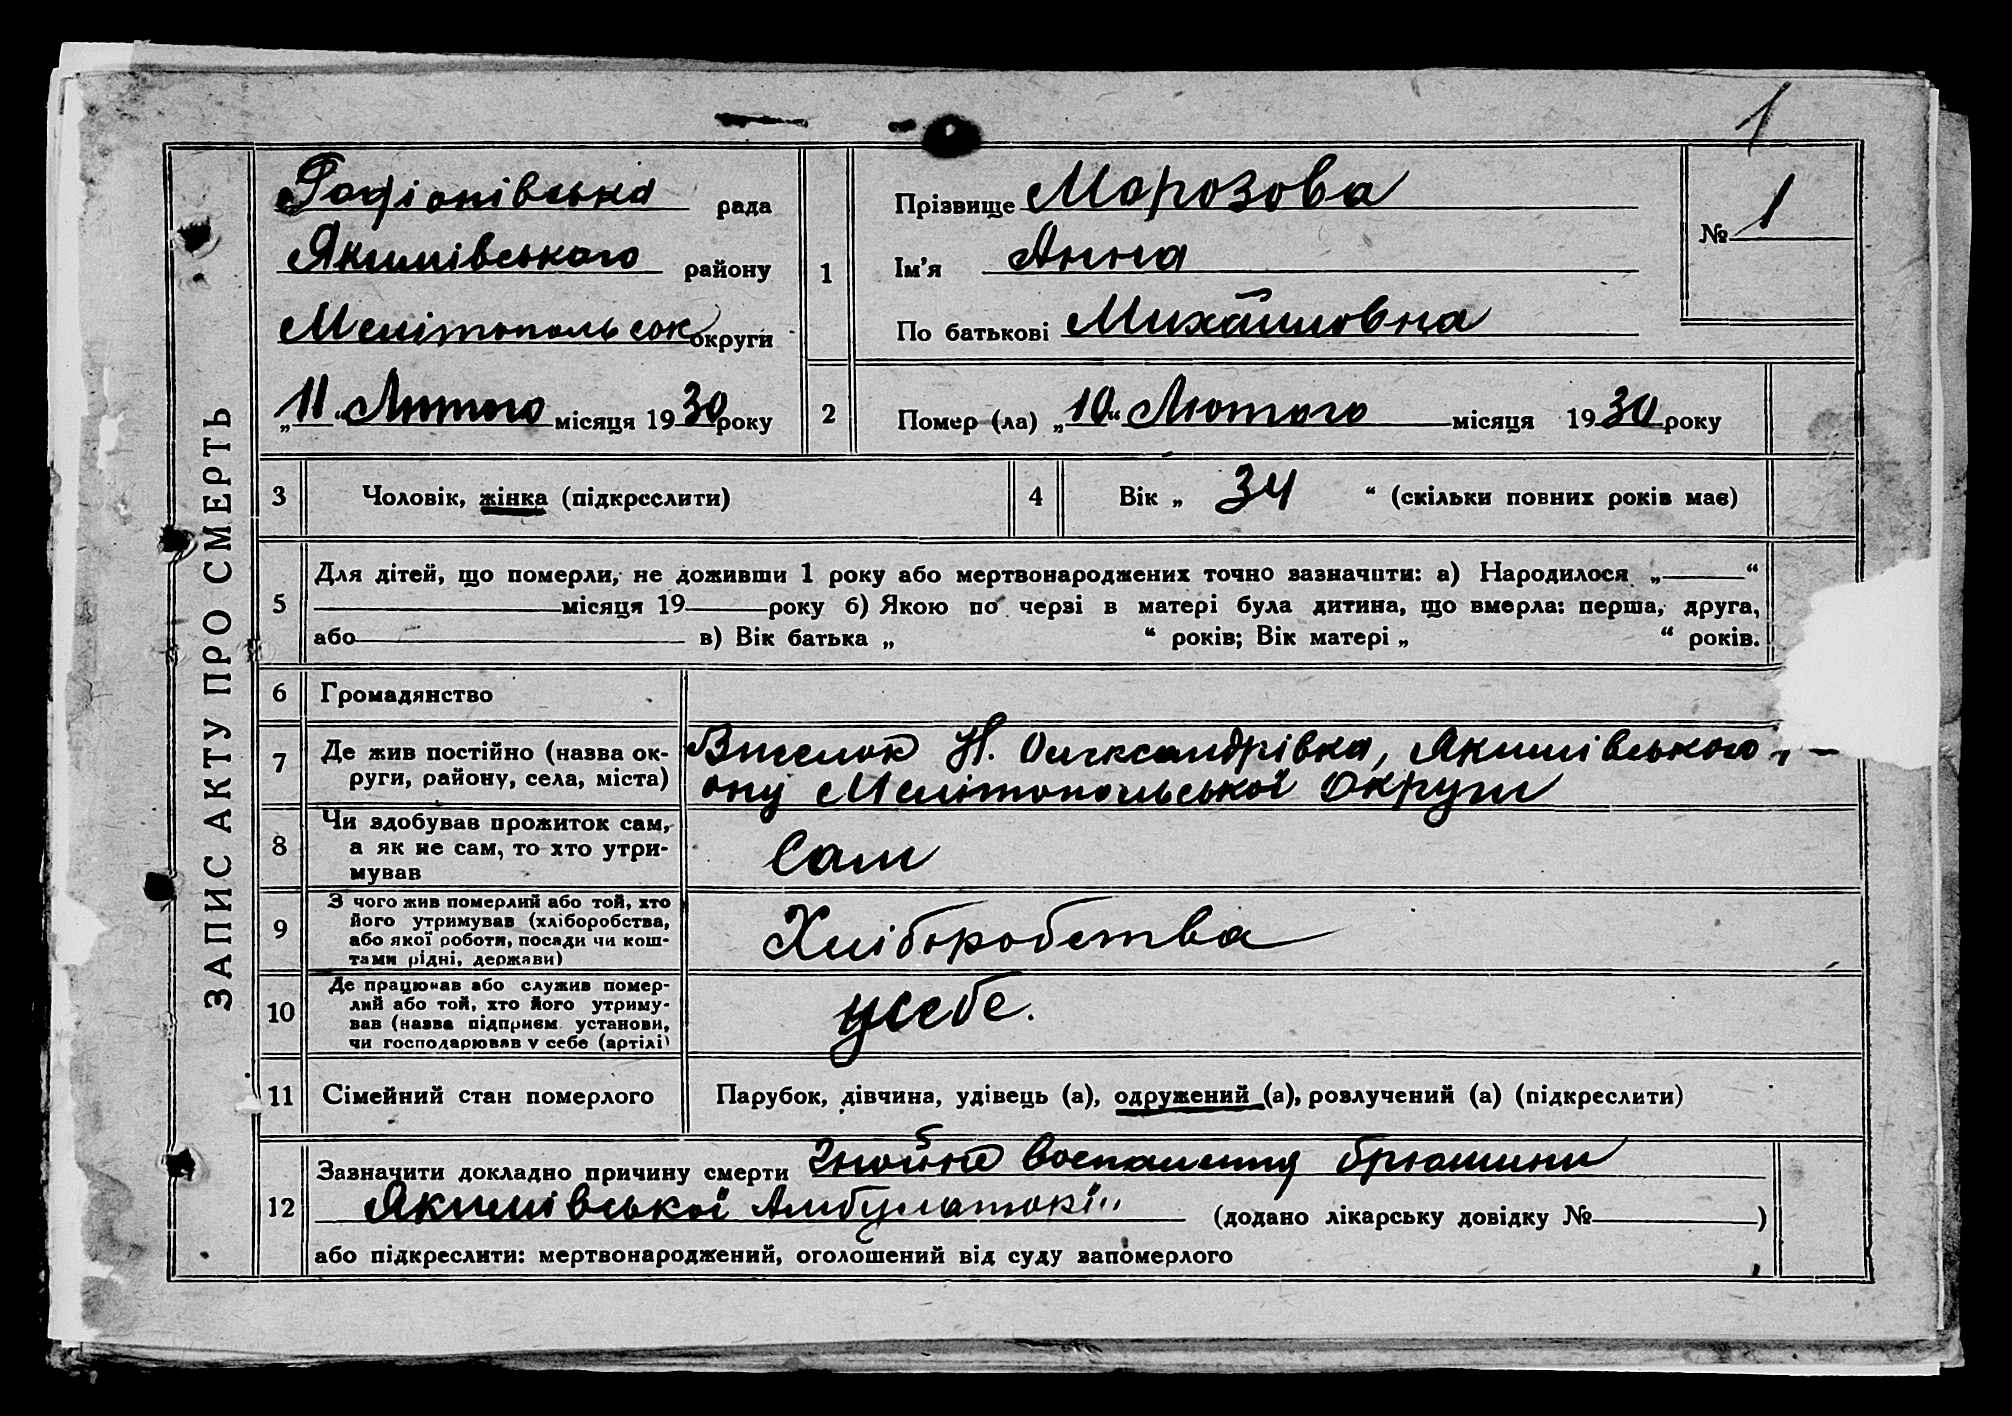 1
ЗАПИС АКТУ ПРО СМЕРТЬ
Радіонівська рада
Якимівського району
Мелітопольськ округи
„11“ Лютого місяця 1930 року
1
Прізвище Морозова
Ім'я Анна
По батькові Михайловна
№ 1
2 Помер (ла) „10“ Лютого місяця 1930 року
3 Чоловік, жінка (підкреслити)
4 Вік „ 34 “ (скільки повних років має)
5 Для дітей, що померли, не доживши 1 року або мертвонароджених точно зазначити: а) Народилося „ “
місяця 19 року б) Якою по черзі в матері була дитина, що вмерла: перша, друга,
або в) Вік батька „ “ років; Вік матері „ “ років.
6 Громадянство
7 Де жив постійно (назва ок-
руги, району, села, міста)
Виселок Н. Олександрівка, Якимівського
ону Мелітопольської Округи
8 Чи здобував прожиток сам,
а як не сам, то хто утри-
мував
Сам
9 З чого жив померлий або той, хто
його утримував (хліборобства,
або якої роботи, посади чи кош-
тами рідні, держави)
Хліборобства
10 Де працював або служив помер-
лий або той, хто його утриму-
вав (назва підприєм. установи,
чи господарював у себе (артілі)
усебе.
11 Сімейний стан померлого
Парубок, дівчина, удівець (а), одружений (а), розлучений (а) (підкреслити)
12 Зазначити докладно причину смерти Гнойне воспаление брюшини
Якимівської Амбулаторії (додано лікарську довідку № )
або підкреслити: мертвонароджений, оголошений від суду запомерлого